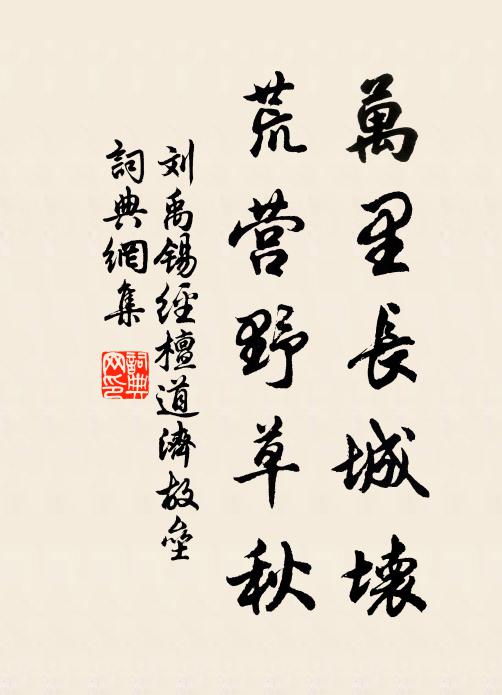 萬里長城壞
荒营野草秋
刘禹锡經檀道濟故垒
詞典網集
詞典网印